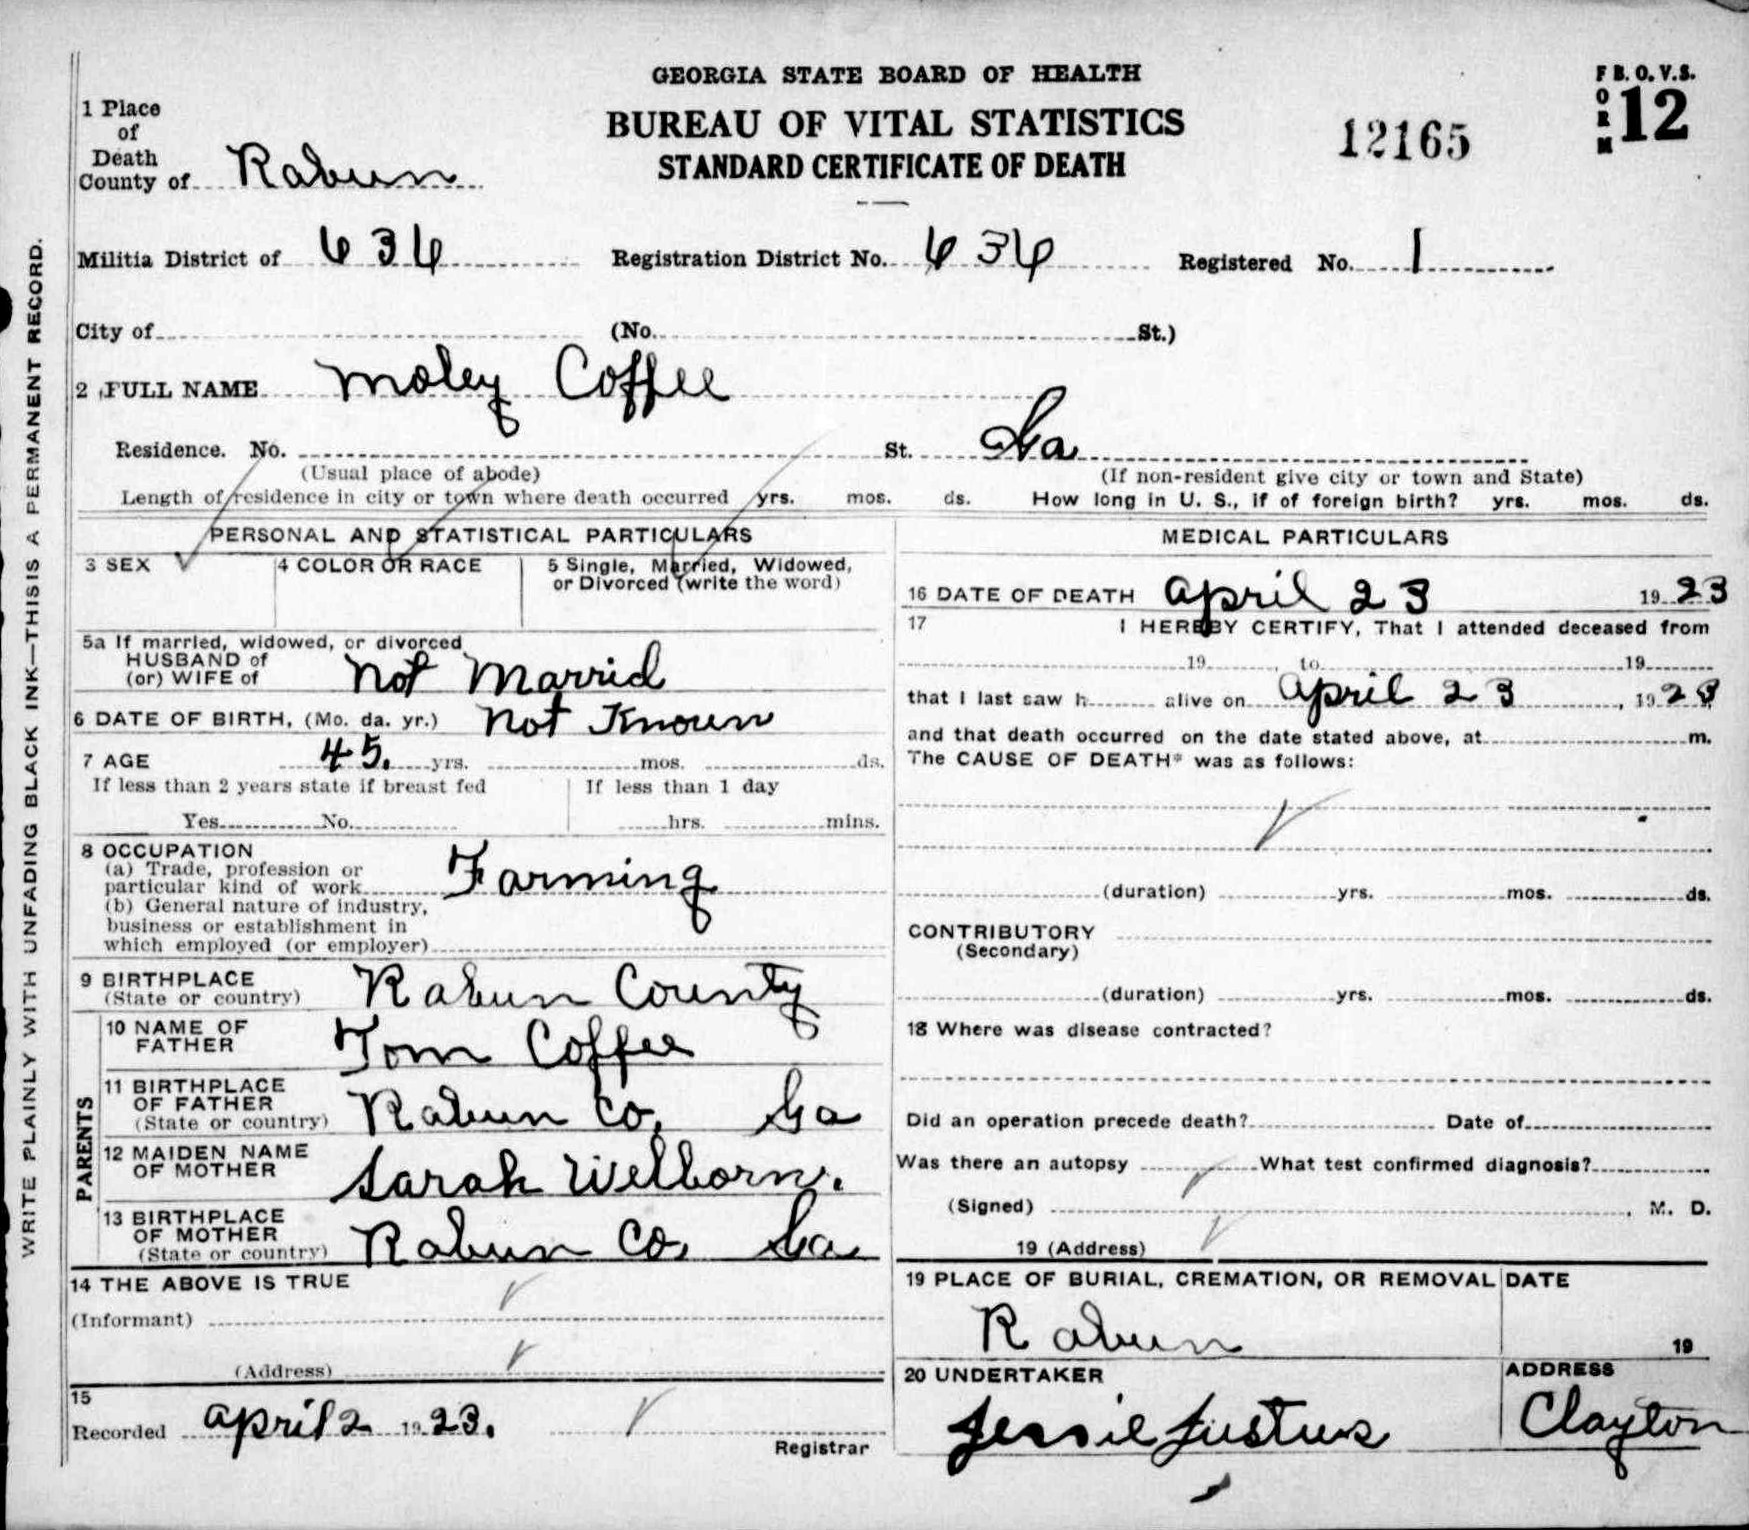 GEORGIA STATE BOARD OF HEALTH
BUREAU OF VITAL STATISTICS
STANDARD CERTIFICATE OF DEATH
12165
FORM B. O. V. S. 12
WRITE PLAINLY WITH UNFADING BLACK INK—THIS IS A PERMANENT RECORD.
1 Place
of
Death
County of Rabun
Militia District of 636 Registration District No. 636 Registered No. 1
City of (No. St.)
2 FULL NAME Moley Coffee
Residence. No. St. Ga
(Usual place of abode) (If non-resident give city or town and State)
Length of residence in city or town where death occurred yrs. mos. ds. How long in U. S., if of foreign birth? yrs. mos. ds.
PERSONAL AND STATISTICAL PARTICULARS
3 SEX 4 COLOR OR RACE 5 Single, Married, Widowed,
or Divorced (write the word)
5a If married, widowed, or divorced
HUSBAND of
(or) WIFE of Not Marrid
6 DATE OF BIRTH, (Mo. da. yr.) Not Knoun
7 AGE 45. yrs. mos. ds.
If less than 2 years state if breast fed If less than 1 day
Yes No. hrs. mins.
8 OCCUPATION
(a) Trade, profession or
particular kind of work Farming
(b) General nature of industry,
business or establishment in
which employed (or employer)
9 BIRTHPLACE
(State or country) Rabun County
PARENTS
10 NAME OF
FATHER Tom Coffee
11 BIRTHPLACE
OF FATHER
(State or country) Rabun Co. Ga
12 MAIDEN NAME
OF MOTHER Sarah Welborn.
13 BIRTHPLACE
OF MOTHER
(State or country) Rabun Co. Ga
14 THE ABOVE IS TRUE
(Informant)
(Address)
15
Recorded April 2 1923.
Registrar
MEDICAL PARTICULARS
16 DATE OF DEATH April 23 1923
17 I HEREBY CERTIFY, That I attended deceased from
19 , to 19
that I last saw h alive on April 23, 1923
and that death occurred on the date stated above, at m.
The CAUSE OF DEATH* was as follows:
(duration) yrs. mos. ds.
CONTRIBUTORY
(Secondary)
(duration) yrs. mos. ds.
18 Where was disease contracted?
Did an operation precede death? Date of
Was there an autopsy What test confirmed diagnosis?
(Signed) , M. D.
19 (Address)
19 PLACE OF BURIAL, CREMATION, OR REMOVAL DATE
Rabun 19
20 UNDERTAKER ADDRESS
Jessie Justus Clayton